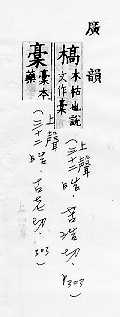 廣韻
槁木枯也說
文作槀
上聲(三十二晧.苦浩切.P303)
槀槀本
藥
上聲(三十二晧.古老切.303)